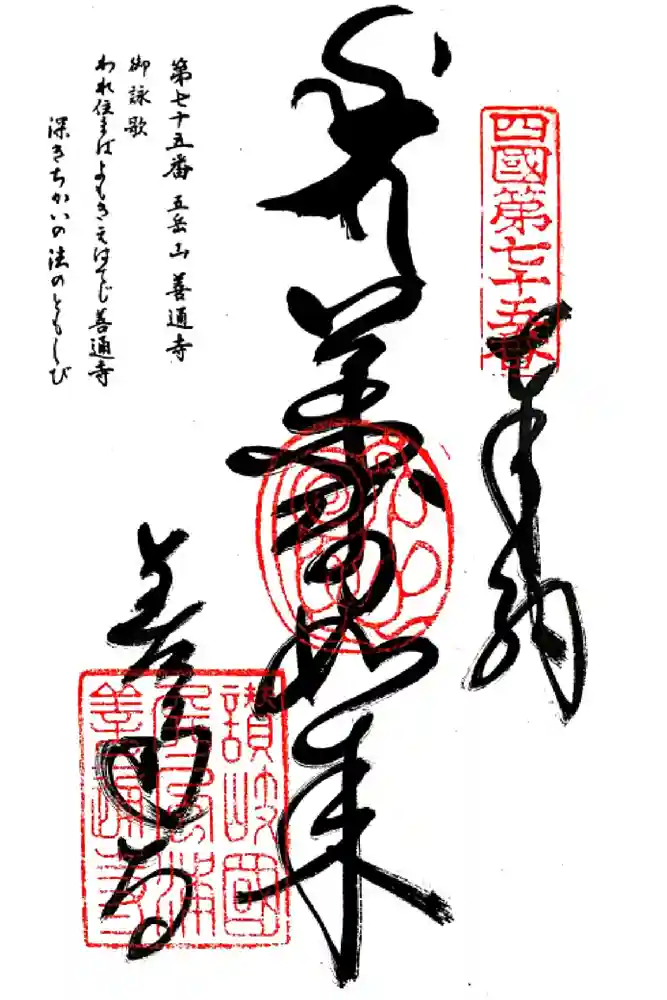 四國第七十五番
奉納
薬師如来
第七十五番 五岳山 善通寺
御詠歌
われ住まば よもきえはてじ 善通寺
深きちかいの 法のともしび
善通寺
讃岐國
屏風浦
善通寺